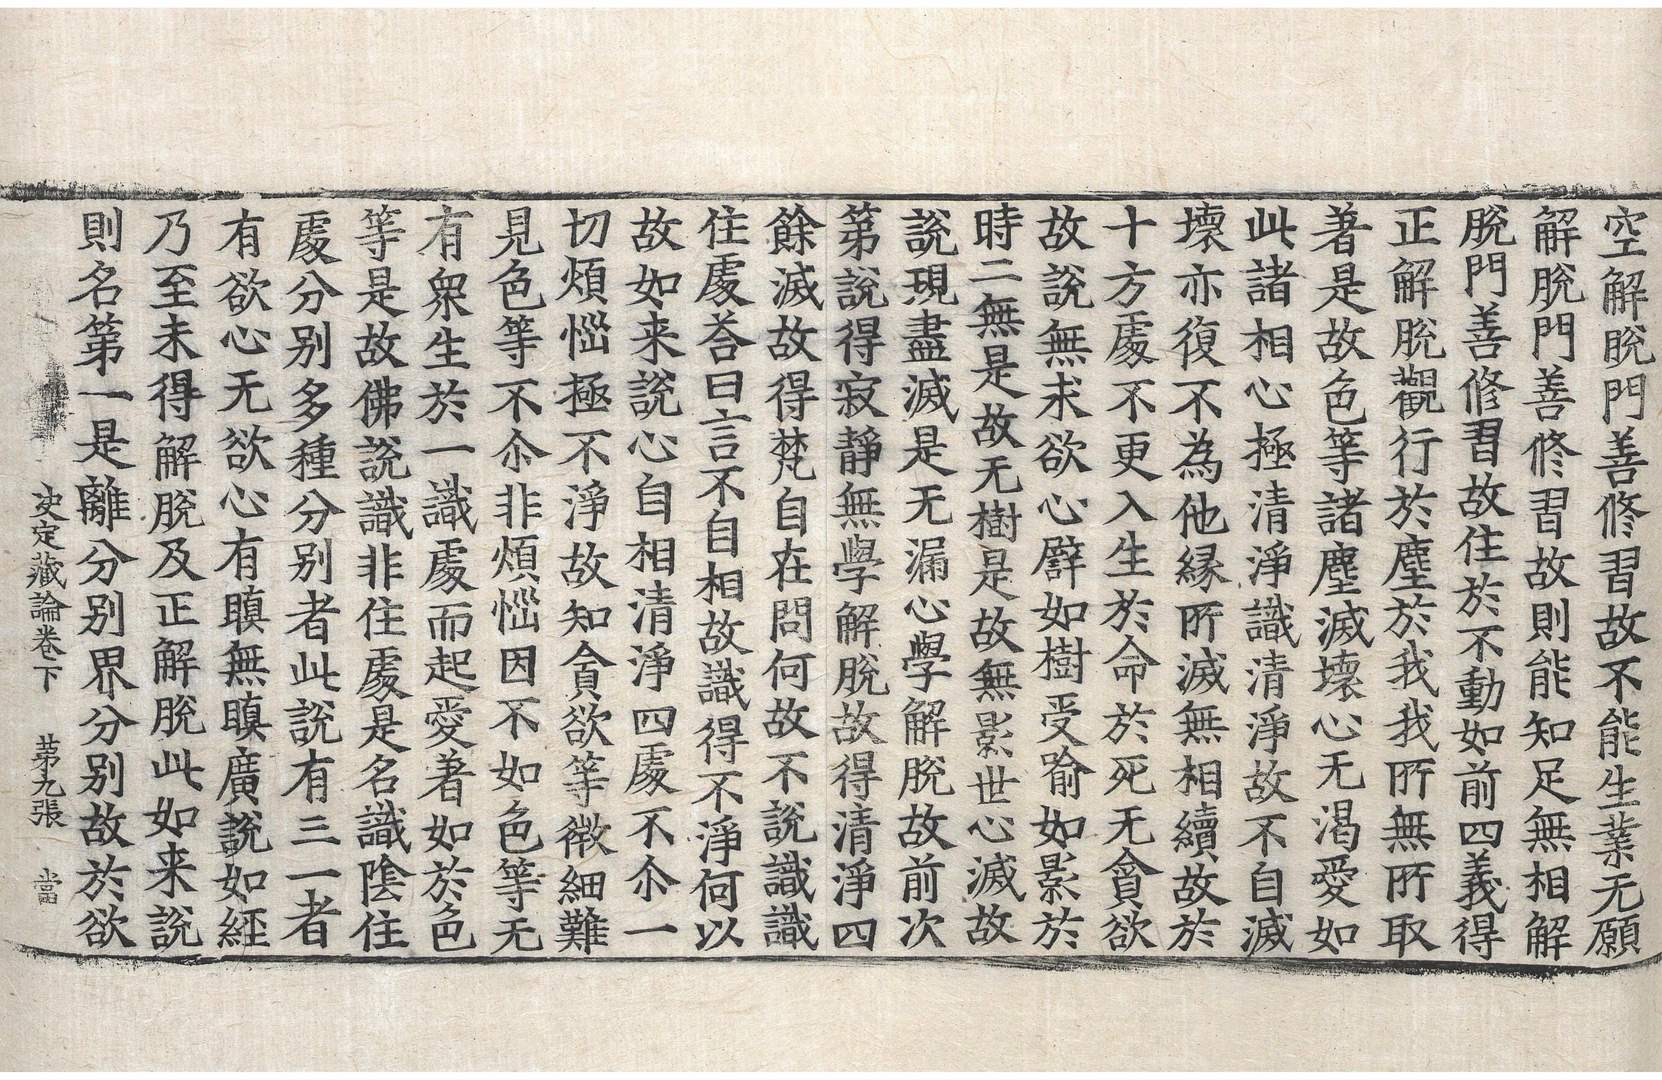 空解脫門善修習故不能生業无願
解脫門善修習故則能知足無相解
脫門善修習故住於不動如前四義得
正解脫觀行於塵於我我所無所取
著是故色等諸塵滅壞心无渴愛如
此諸相心極清淨識清淨故不自滅
壞亦復不為他緣所滅無相續故於
十方處不更入生於命於死无貪欲
故說無求欲心譬如樹受喻如影於
時二無是故无樹是故無影世心滅故
說現盡滅是无漏心學解脫故前次
第說得寂靜無學解脫故得清淨四
餘滅故得梵自在問何故不說識識
住處荅曰言不自相故識得不淨何以
故如来說心自相清淨四處不尒一
切煩惱極不淨故知貪欲等微細難
見色等不尒非煩惱因不如色等无
有衆生於一識處而起愛著如於色
等是故佛說識非住處是名識陰住
處分别多種分别者此說有三一者
有欲心无欲心有瞋無瞋廣說如經
乃至未得解脫及正解脫此如来說
則名第一是離分别界分别故於欲
决定藏論卷下 第九張 當